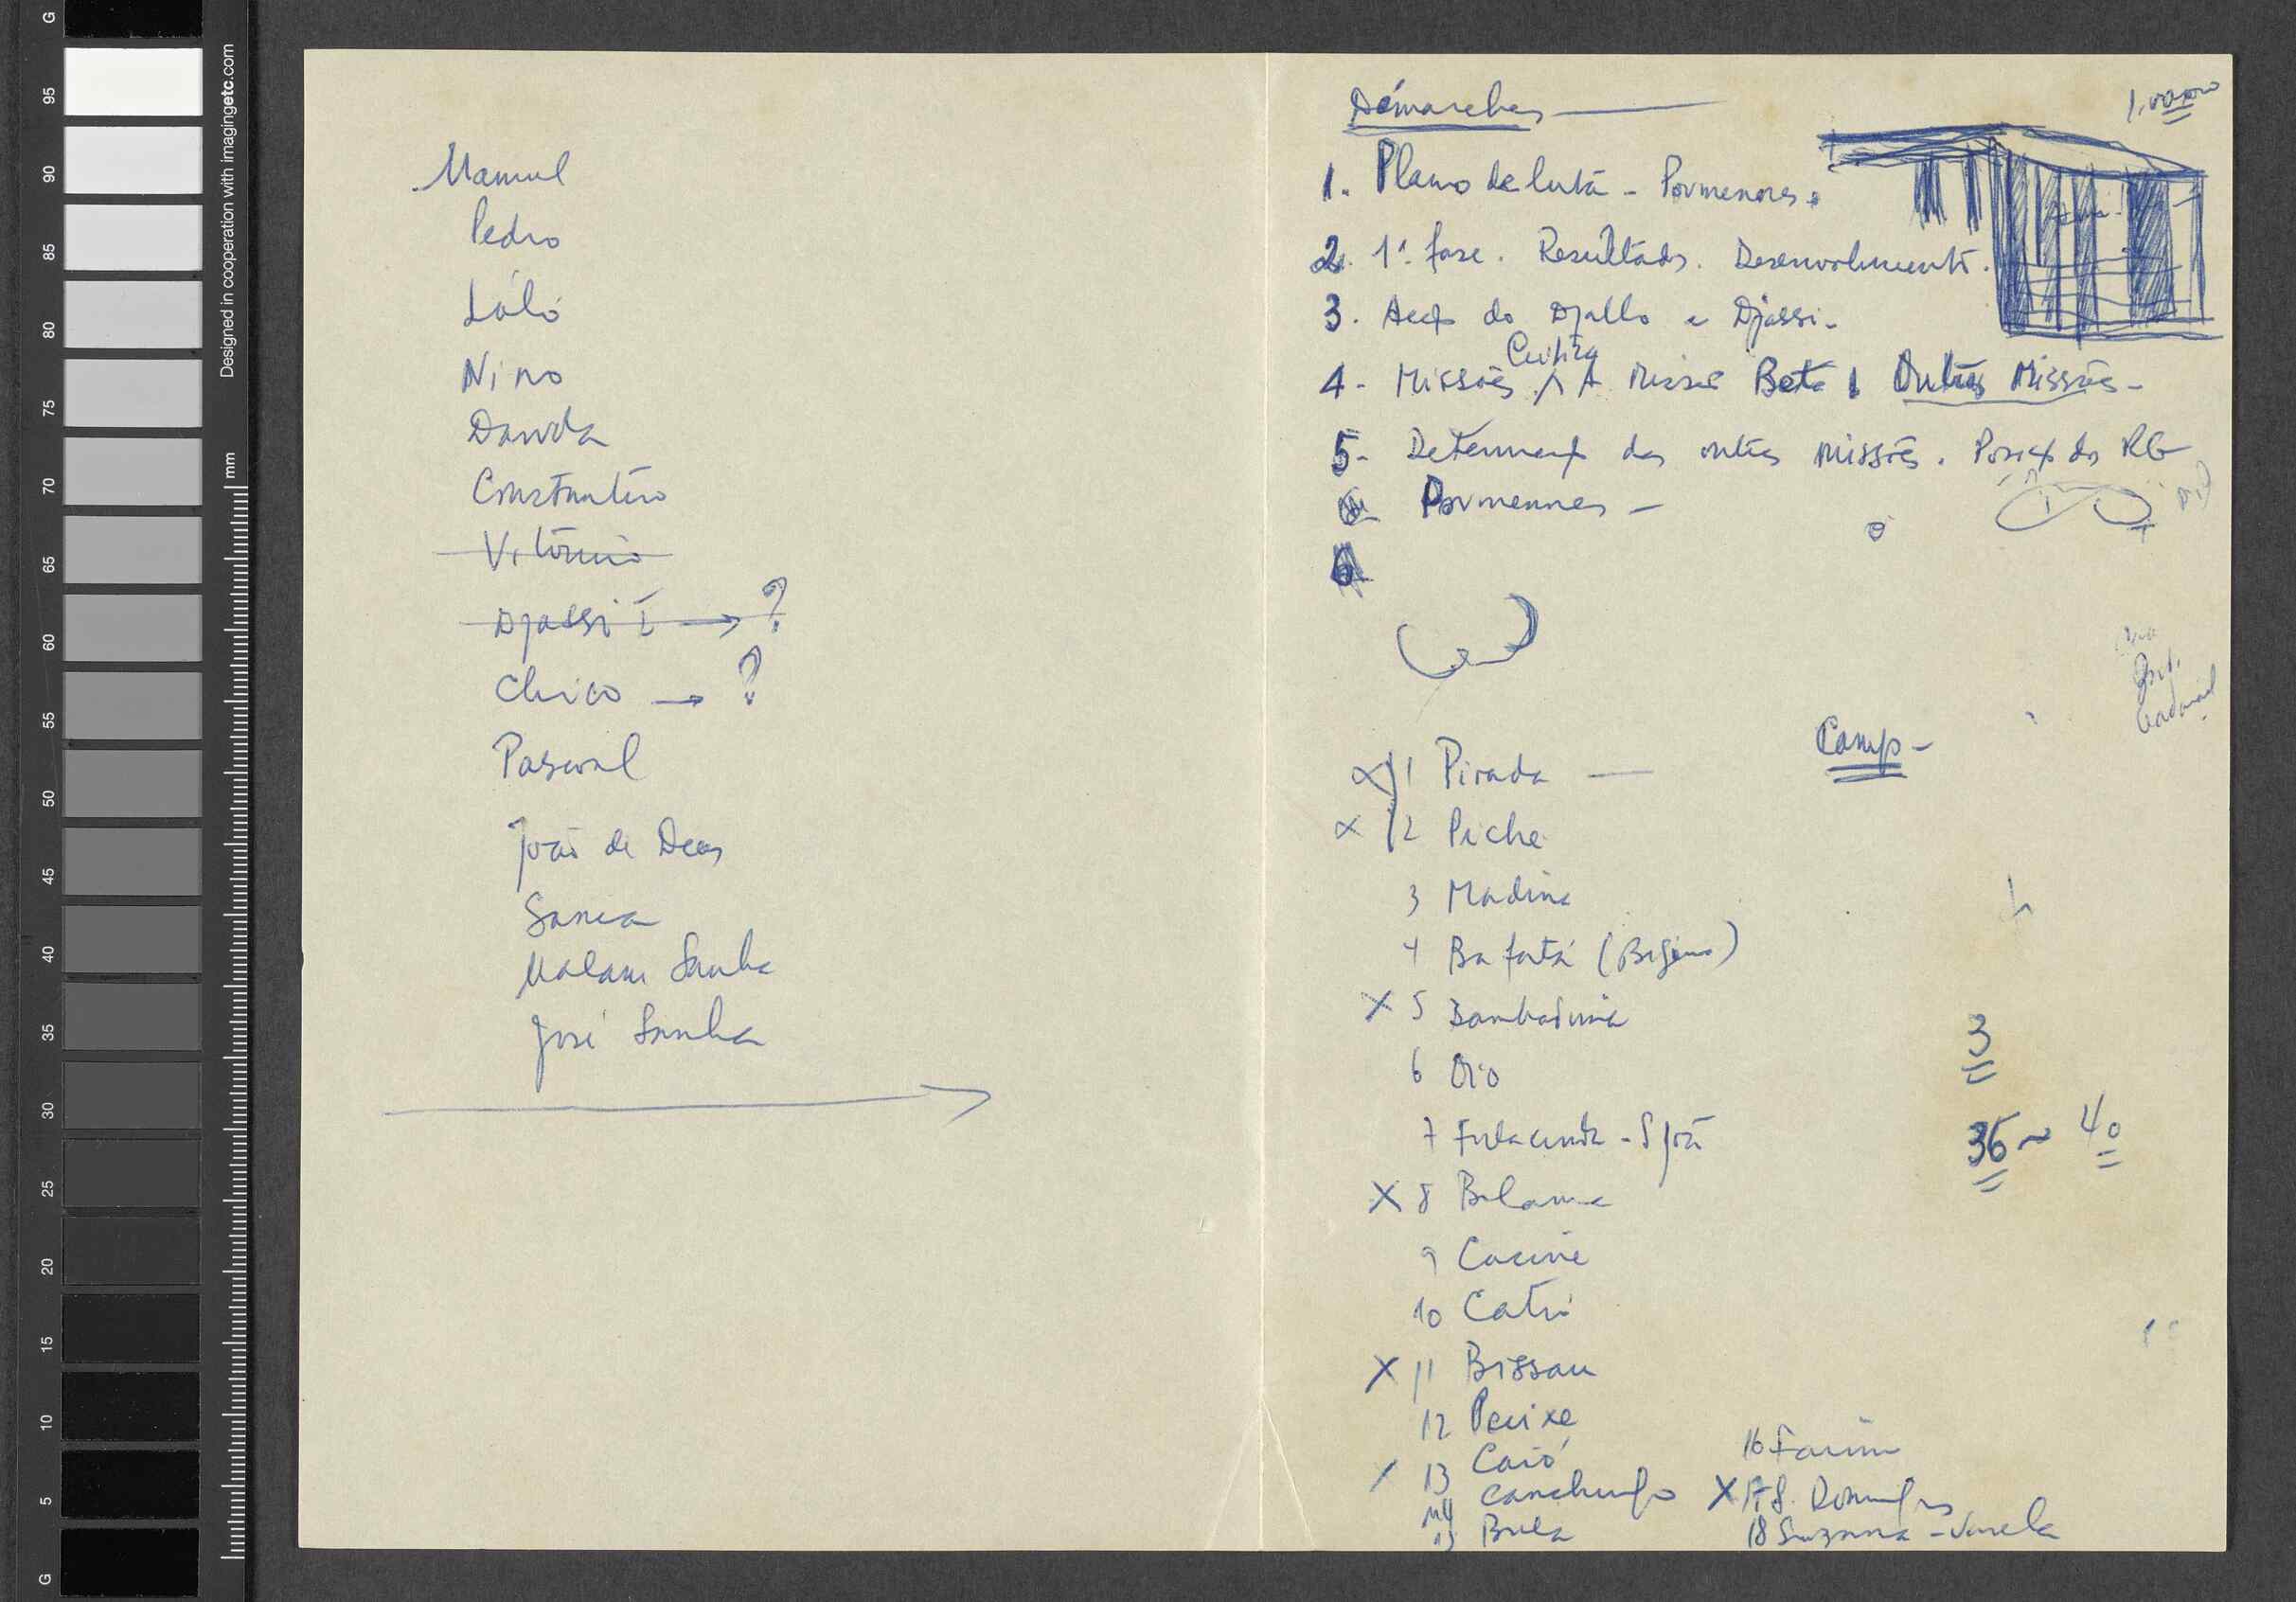 Manuel
Pedro
Láló
Nino
Danda
Constantino
Vitorino
Djassi I → ?
Chico → ?
Pascoal
João de Deus
Sanca
Malam Sanha
José Sanha
Démarches
1.00000
1. Plano de luta - Pormenores.
2. 1ª fase. Resultados. Desenvolvimento.
3. do Djallo e Djassi -
4 - Missões A Missão Beta Outras Missões -
5 - das outras missões. do RG
Pormenores -
6
Camp -
X 1 Pirada
X 2 Piche
3 Madina
4 Bafatá
X 5 Bambadinca
6 Oio
7 Fulacunda - S. João
X 8 Bolama
9 Cacine
10 Catió
X 11 Bissau
12 Pecixe
13 Caió
14 Canchungo
15 Bula
16 Farim
X 17 S. Domingos
18 Suzana - Varela
3
36 ~ 40
Designed in cooperation with imagingetc.com
mm
G
95
90
85
80
75
70
65
60
55
50
45
40
35
30
25
20
15
10
5
G